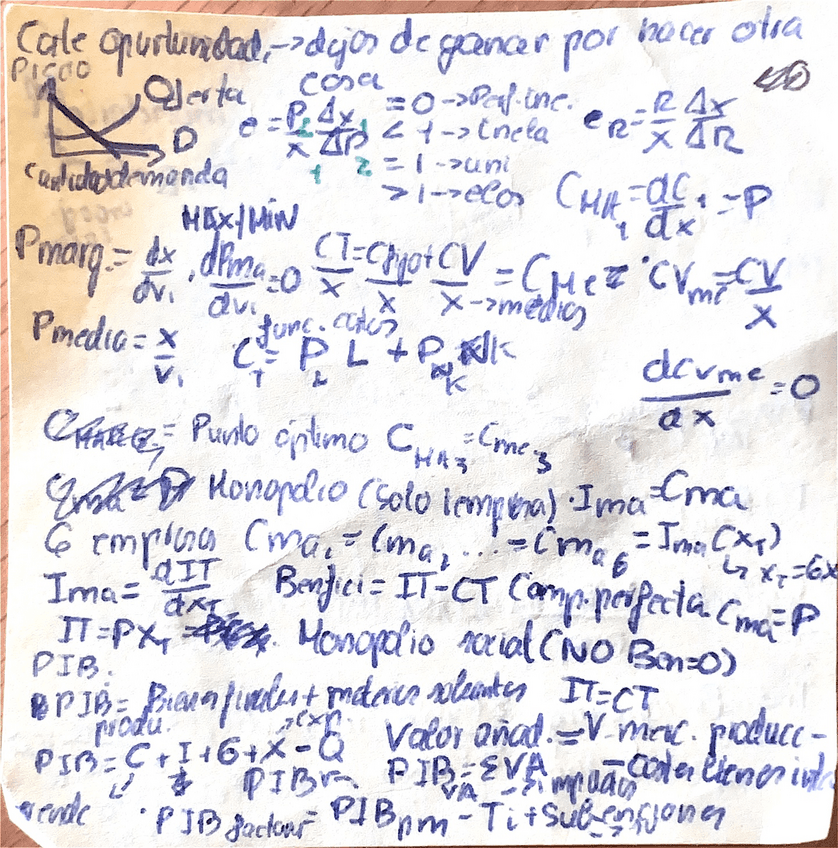 Coste oportunidad → dejas de ganar por hacer otra
cosa
Precio
Oferta
D
Cantidad demanda
e = P/x Δx/ΔP
= 0 → Perf. ine.
< 1 → inela
= 1 → uni
> 1 → elas
e_R = R/x Δx/ΔR
C_MA = dC/dx = P
MAX/MIN
Pmarg. = dx/dv₁ · dPma/dv₁ = 0
CT/x = Cfijo/x + CV/x → medios = CMe
CVme = CV/x
Pmedia = x/v₁
func. costos
C_T = P_L L + P_K K
dCVme/dx = 0
Punto óptimo C_MA = Cme
Monopolio (solo 1 empresa) · Ima = Cma
6 empresa Cma₁ = Cma₂ ... = Cma₆ = Ima (x_T)
↳ x_T = 6x
Ima = dIT/dx_T
Benfici = IT - CT
Comp. perfecta. Cma = P
IT = P x_T
Monopolio social (NO Ben = 0)
IT = CT
PIB:
PIB = Bienes finales + materias sobrantes
produ.
Valor añad. = V. merc. producc -
- costes bienes inte
PIB = C + I + G + X - Q
→ exp
PIB = ΣVA
PIB factores = PIBpm - Ti + Subenciones